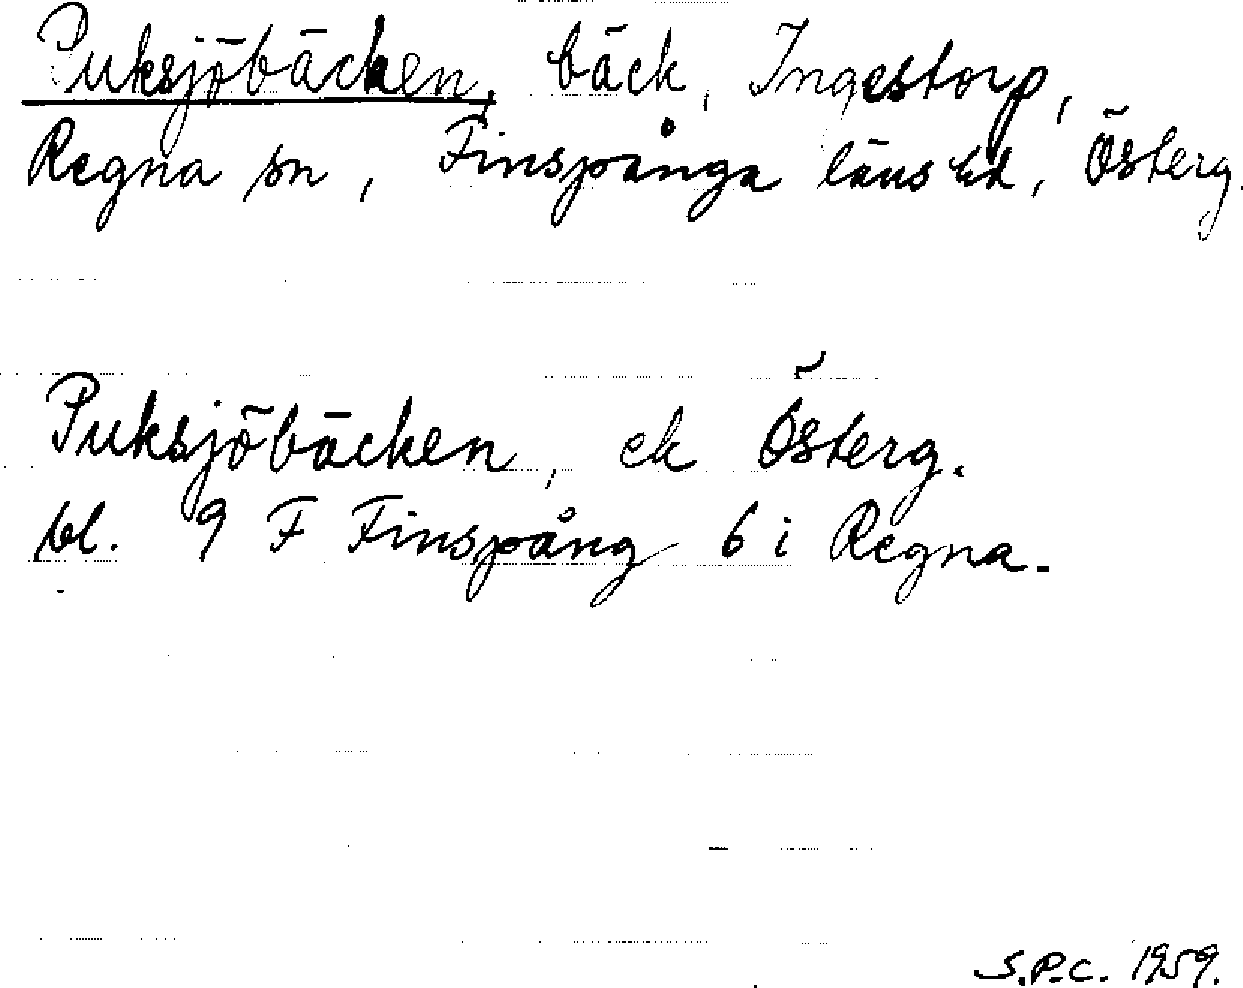 Puksjöbäcken, bäck, Ingestorp,
Regna sn, Finspånga läns hd, Österg.
Puksjöbäcken, ek Österg.
bl. 9 F Finspång 6 i Regna.
S.P.C. 1959.